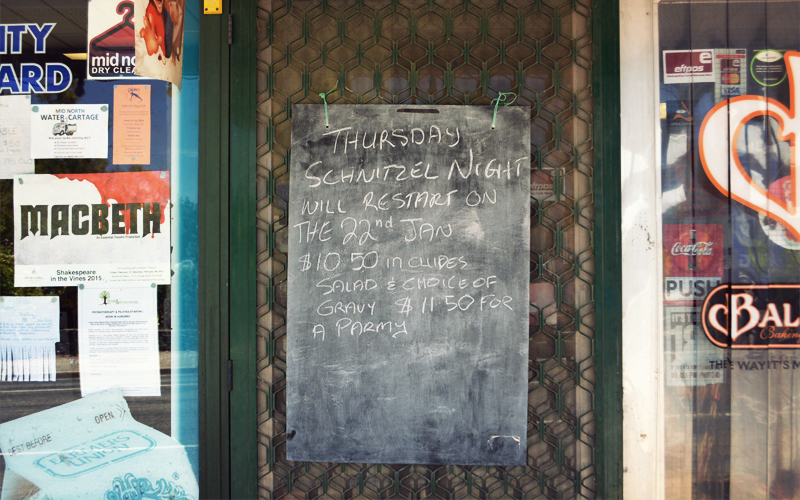 ITY
ARD
mid no
DRY CLEA
MID NORTH
WATER CARTAGE
MACBETH
Shakespeare
in the Vines 2015
BEST BEFORE
OPEN
FARMERS
UNION
THURSDAY
SCHNITZEL NIGHT
WILL RESTART ON
THE 22nd JAN
$10 50 INCLUDES
SALAD & CHOICE OF
GRAVY $11 50 FOR
A PARMY
eftpos
VISA
Coca-Cola
PUSH
IT'S
BAL
Baken
THE WAY IT'S M